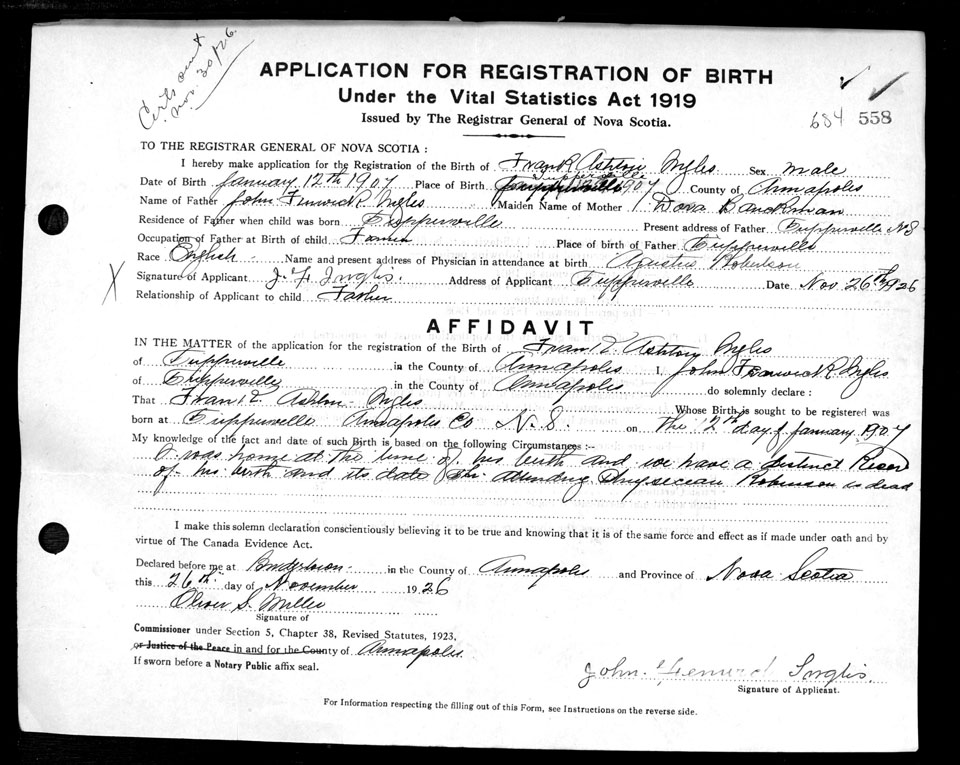 Certs sent
Nov. 30/26.
APPLICATION FOR REGISTRATION OF BIRTH
Under the Vital Statistics Act 1919
Issued by The Registrar General of Nova Scotia.
684 558
TO THE REGISTRAR GENERAL OF NOVA SCOTIA :
I hereby make application for the Registration of the Birth of Frank Ashton Ingles Sex male
Tupperville
Date of Birth January 12th 1907 Place of Birth 1907 County of Annapolis
Name of Father John Fenwick Ingles Maiden Name of Mother Dora Banckman
Residence of Father when child was born Tupperville Present address of Father Tupperville NS
Occupation of Father at Birth of child Farmer Place of birth of Father Tupperville
Race English Name and present address of Physician in attendance at birth Agustus Robertson
X Signature of Applicant J. F. Inglis. Address of Applicant Tupperville Date Nov. 26th 1926
Relationship of Applicant to child Father
AFFIDAVIT
IN THE MATTER of the application for the registration of the Birth of Frank Ashton Ingles
of Tupperville in the County of Annapolis I, John Fenwick Ingles
of Tupperville in the County of Annapolis do solemnly declare :
That Frank Ashton Ingles Whose Birth is sought to be registered was
born at Tupperville Annapolis Co N. S. on The 12th day of January 1907
My knowledge of the fact and date of such Birth is based on the following Circumstances :-
I was home at the time of his birth and we have a distinct Record
of his birth and its date The attending Physecian Robinson is dead
I make this solemn declaration conscientiously believing it to be true and knowing that it is of the same force and effect as if made under oath and by
virtue of The Canada Evidence Act.
Declared before me at Bridgetown in the County of Annapolis and Province of Nova Scotia
this 26th day of November 1926
Oliver S. Miller
Signature of
Commissioner under Section 5, Chapter 38, Revised Statutes, 1923,
or Justice of the Peace in and for the County of Annapolis
If sworn before a Notary Public affix seal.
John Fenwick Inglis.
Signature of Applicant.
For Information respecting the filling out of this Form, see Instructions on the reverse side.